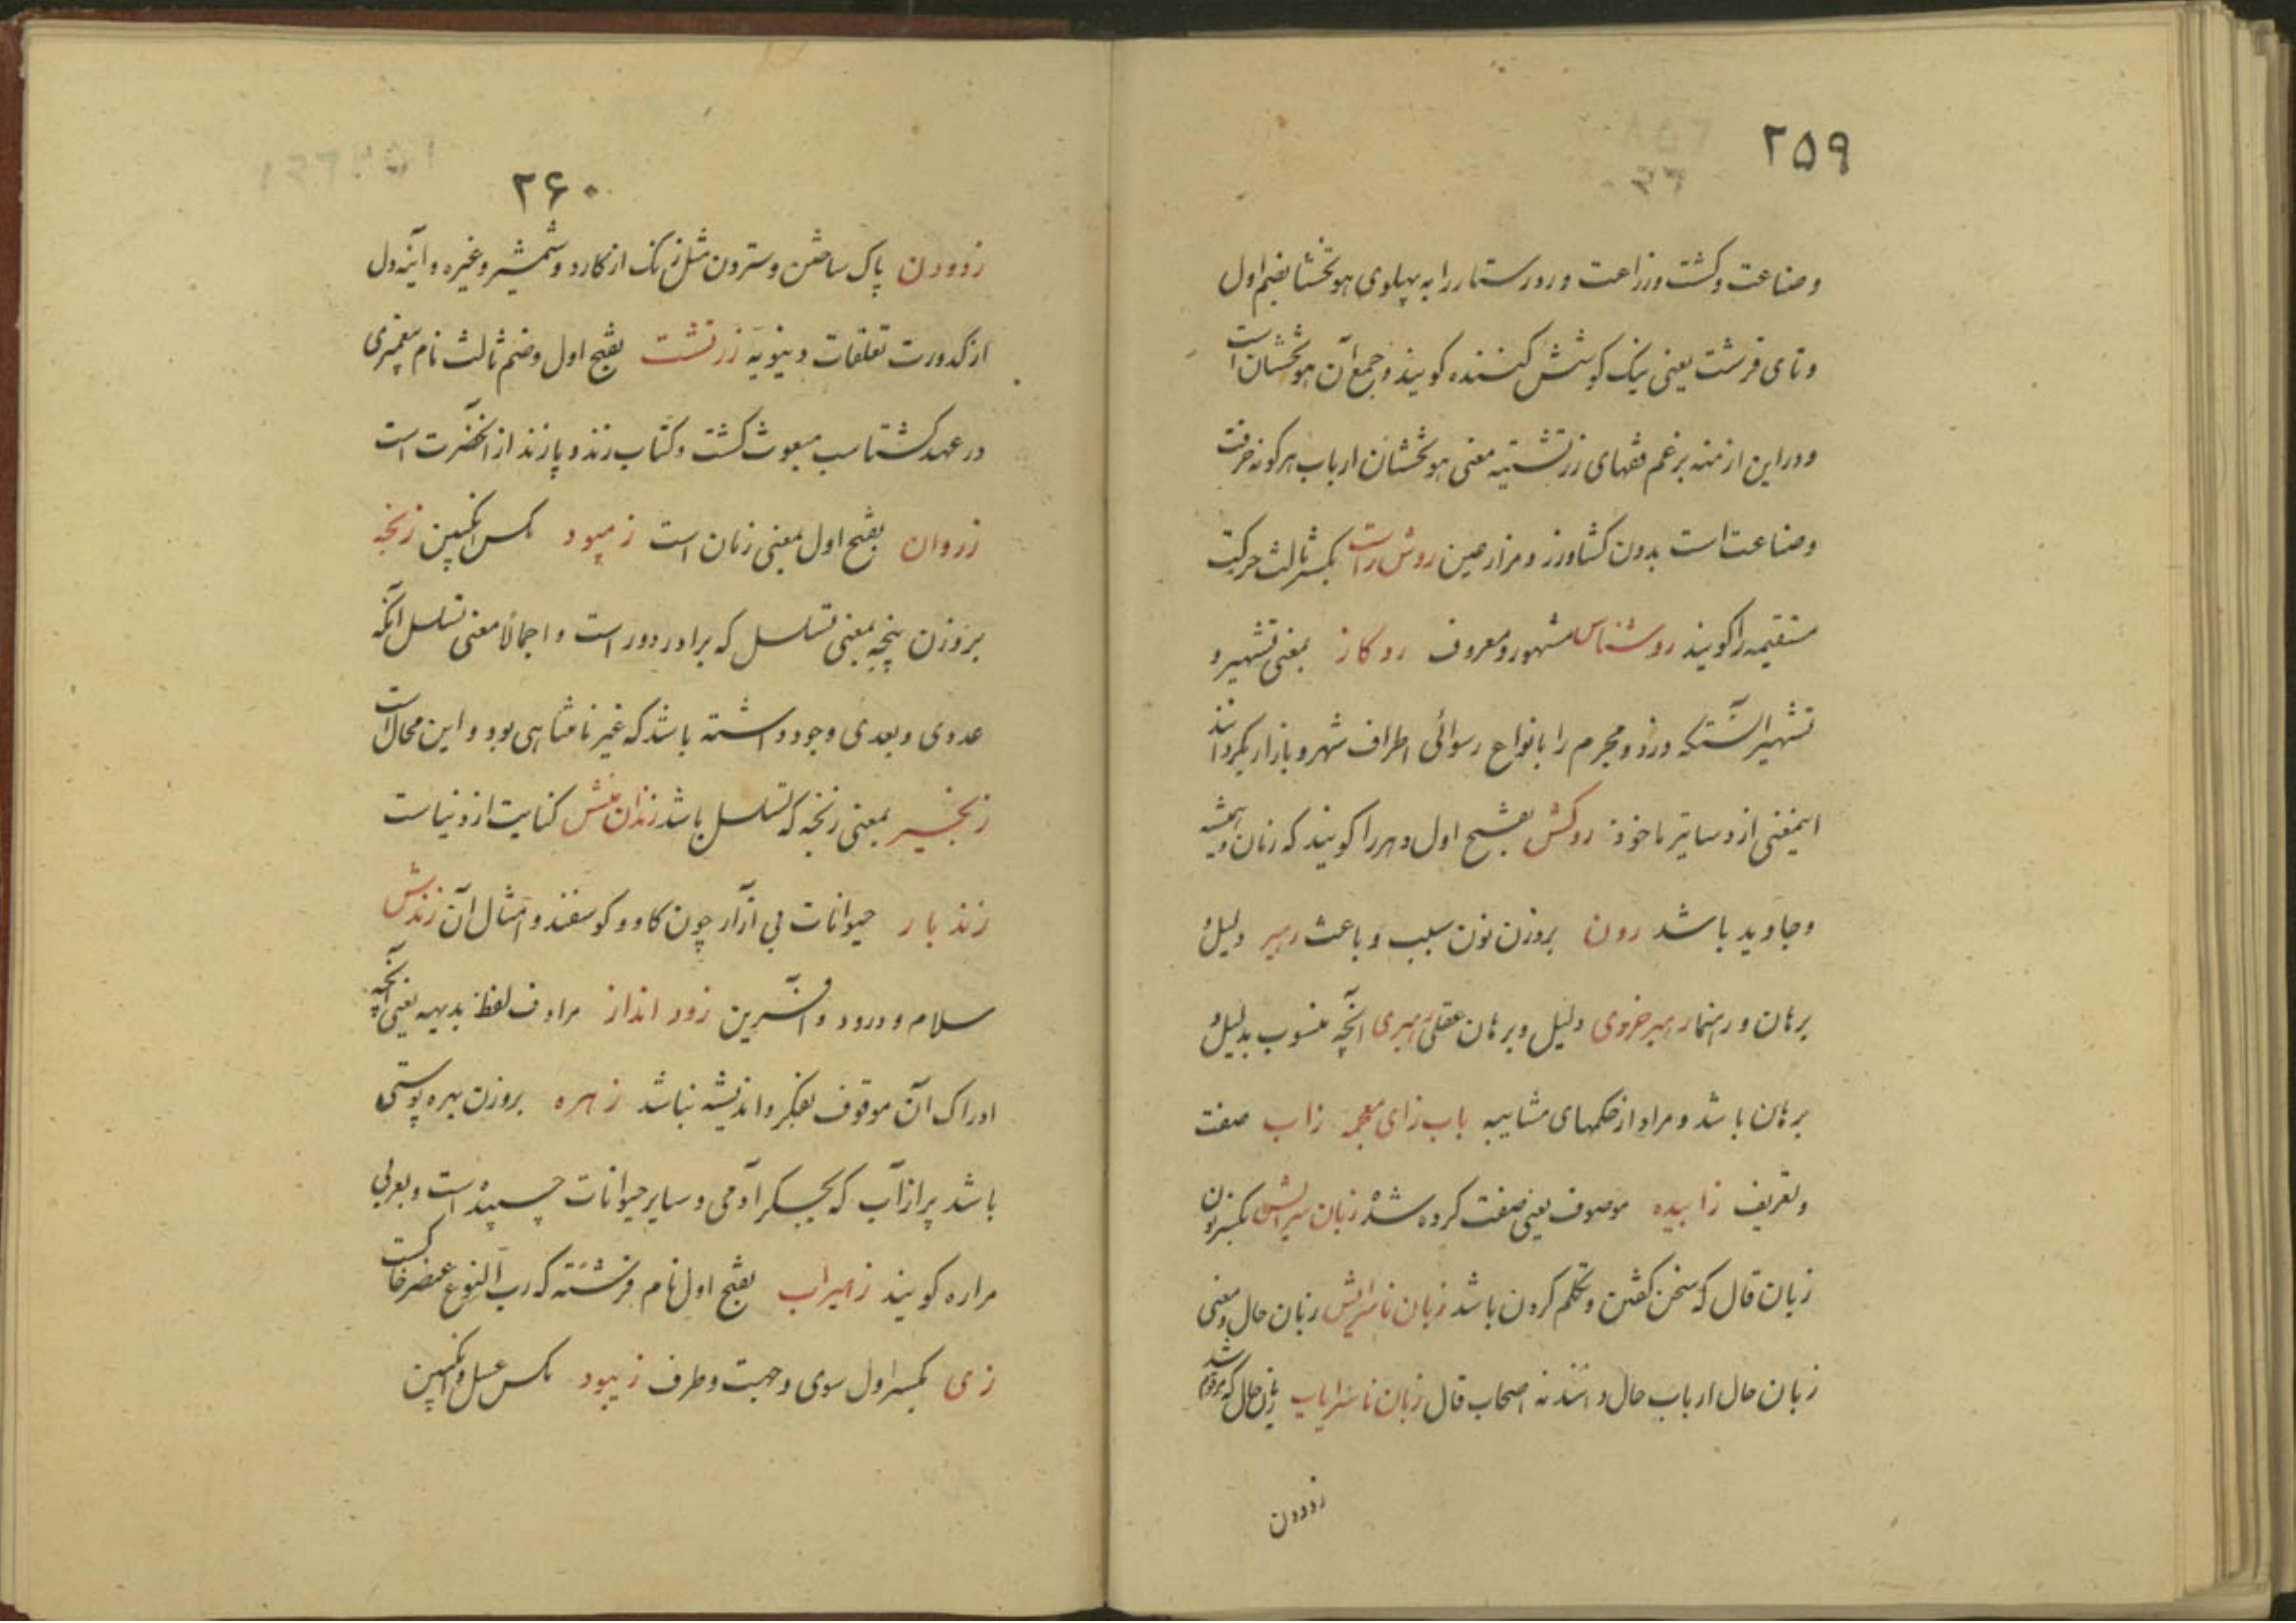 ۲۵۹
وصناعت وکشت وزراعت و رورستار را به پهلوی هوتخشا بضم اول
وتای قرشت یعنی نیک کوشش کننده کویند وجمع آن هوتخشان است
ودراین ازمنه بزعم فقهای زرتشتیه معنی هوتخشان ارباب هرکونه حرفت
وصناعت است بدون کشاورز ومزارعین روش راست بکسر ثالث حرکت
مستقیمه را کویند روشناس مشهور ومعروف روکاز بمعنی تشهیر و
تشهیر آنستکه دزد ومجرم را بانواع رسوائی اطراف شهر وبازار بکردانند
اینمعنی از دساتیر ماخوذ روکش بفتح اول دهر را کویند که زمان همیشه
وجاوید باشد رون بروزن نون سبب وباعث رهبر دلیل و
برهان و رهنما رهبر خردی دلیل وبرهان عقلی رهبری آنچه منسوب بدلیل و
برهان باشد ومراد از حکمهای مشاییه باب زای معجمه زاب صفت
وتعریف زابیده موصوف یعنی صفت کرده شده زبان سرایش بکسر نون
زبان قال که سخن کفتن وتکلم کردن باشد زبان ناسرایش زبان حال ومعنی
زبان حال ارباب حال دانند نه اصحاب قال زبان ناسرایاب زبان حال که مرقوم شد
زدودن
۲۶۰
زدودن پاک ساختن وستردن مثل زنک از کارد وشمشیر وغیره وآینه دل
از کدورت تعلقات دنیویه زرتشت بفتح اول وضم ثالث نام پیغمبری
در عهد کشتاسب مبعوث کشت وکتاب زند و پازند از آنحضرت است
زروان بفتح اول بمعنی زمان است زمپود مکس انکبین زنخه
بروزن پنجه بمعنی تسلسل که برادر دور است واجمالا معنی تسلسل آنکه
عددی وبعدی وجود داشته باشد که غیر نامتناهی بود واین محال است
زنجیر بمعنی زنخه که تسلسل باشد زندان منش کنایت از دنیاست
زندبار حیوانات بی آزار چون کاو وکوسفند وامثال آن زندش
سلام ودرود وآفرین زود انداز مرادف لفظ بدیهه یعنی آنچه
ادراک آن موقوف بفکر واندیشه نباشد زهره بروزن بهره پوستی
باشد پر از آب که بجکر آدمی وسایر حیوانات چسپیده است وبعربی
مراره کویند زهیراب بفتح اول نام فرشته که رب النوع عنصر خاکست
زی بکسر اول سوی وجهت وطرف زیبود مکس عسل وانکبین